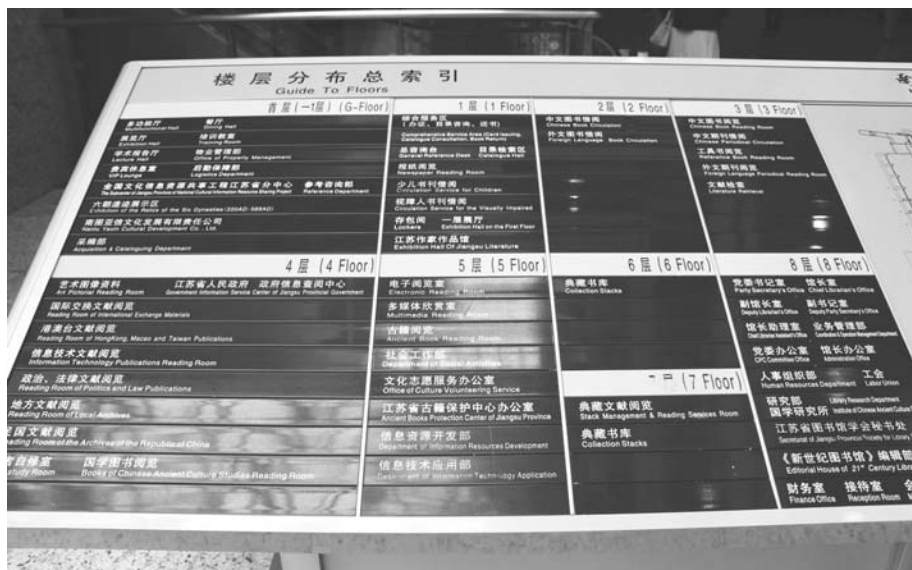 楼层分布总索引
Guide To Floors
首层(一1层)(G-Floor)
多功能厅 餐厅
Multifunctional Hall Dining Hall
展览厅 培训教室
Exhibition Hall Training Room
学术报告厅 物业管理部
Lecture Hall Office of Property Management
贵宾休息室 后勤保障部
VIP Lounge Logistics Department
全国文化信息资源共享工程江苏省分中心 参考咨询部
The Subcenter of Jiangsu Province of National Cultural Information Resources Sharing Project Reference Department
六朝遗迹展示区
Exhibition of the Relics of the Six Dynasties
南图亚信文化发展有限责任公司
Nantu Yaxin Cultural Development Co., Ltd.
采编部
Acquisition & Cataloguing Department
1层(1 Floor)
综合服务区
(办证、目录咨询、还书)
Comprehensive Service Area (Card Issuing, Catalogue Consultation, Book Return)
总咨询台 目录检索区
General Reference Desk Catalogue Hall
报纸阅览
Newspaper Reading Room
少儿书刊借阅
Circulation Service for Children
视障人书刊借阅
Circulation Service for the Visually Impaired
存包间 一层展厅
Lockers Exhibition Hall on the First Floor
江苏作家作品馆
Exhibition Hall Of Jiangsu Literature
2层(2 Floor)
中文图书借阅
Chinese Book Circulation
外文图书借阅
Foreign Language Book Circulation
3层(3 Floor)
中文图书阅览
Chinese Book Reading Room
中文期刊借阅
Chinese Periodical Circulation
工具书阅览
Reference Book Reading Room
外文期刊阅览
Foreign Language Periodical Reading Room
文献检索
Literature Retrieval
4层(4 Floor)
艺术图像资料 江苏省人民政府 政府信息查阅中心
Art Pictorial Reading Room Government Information Service Center of Jiangsu Provincial Government
国际交换文献阅览
Reading Room of International Exchange Materials
港澳台文献阅览
Reading Room of HongKong, Macao and Taiwan Publications
信息技术文献阅览
Information Technology Publications Reading Room
政治、法律文献阅览
Reading Room of Politics and Law Publications
地方文献阅览
Reading Room of Local Archives
国文献阅览
eading Room of the Archives of the Republic of China
自修室 国学图书阅览
study Room Books of Chinese Ancient Culture Studies Reading Room
5层(5 Floor)
电子阅览室
Electronic Reading Room
多媒体欣赏室
Multimedia Reading Room
古籍阅览
Ancient Book Reading Room
社会工作部
Department of Social Activities
文化志愿服务办公室
Office of Culture Volunteering Service
江苏省古籍保护中心办公室
Ancient Books Protection Center of Jiangsu Province
信息资源开发部
Department of Information Resources Development
信息技术应用部
Department of Information Technology Application
6层(6 Floor)
典藏书库
Collection Stacks
7层(7 Floor)
典藏文献阅览
Stack Management & Reading Services Room
典藏书库
Collection Stacks
8层(8 Floor)
党委书记室 馆长室
Party Secretary's Office Chief Librarian's Office
副馆长室 副书记室
Deputy Librarian's Office Deputy Party Secretary's Office
馆长助理室 业务管理部
Chief Librarian Assistant's Office Coordination & Operation Management Department
党委办公室 馆长办公室
CPC Committee Office Administration Office
人事组织部 工会
Human Resources Department Labor Union
研究部 Library Research Department
国学研究所 Institute of Chinese Ancient Culture
江苏省图书馆学会秘书处
Secretariat of Jiangsu Provincial Society for Library
《新世纪图书馆》编辑部
Editorial House of 21st Century Library
财务室 接待室 会
Finance Office Reception Room